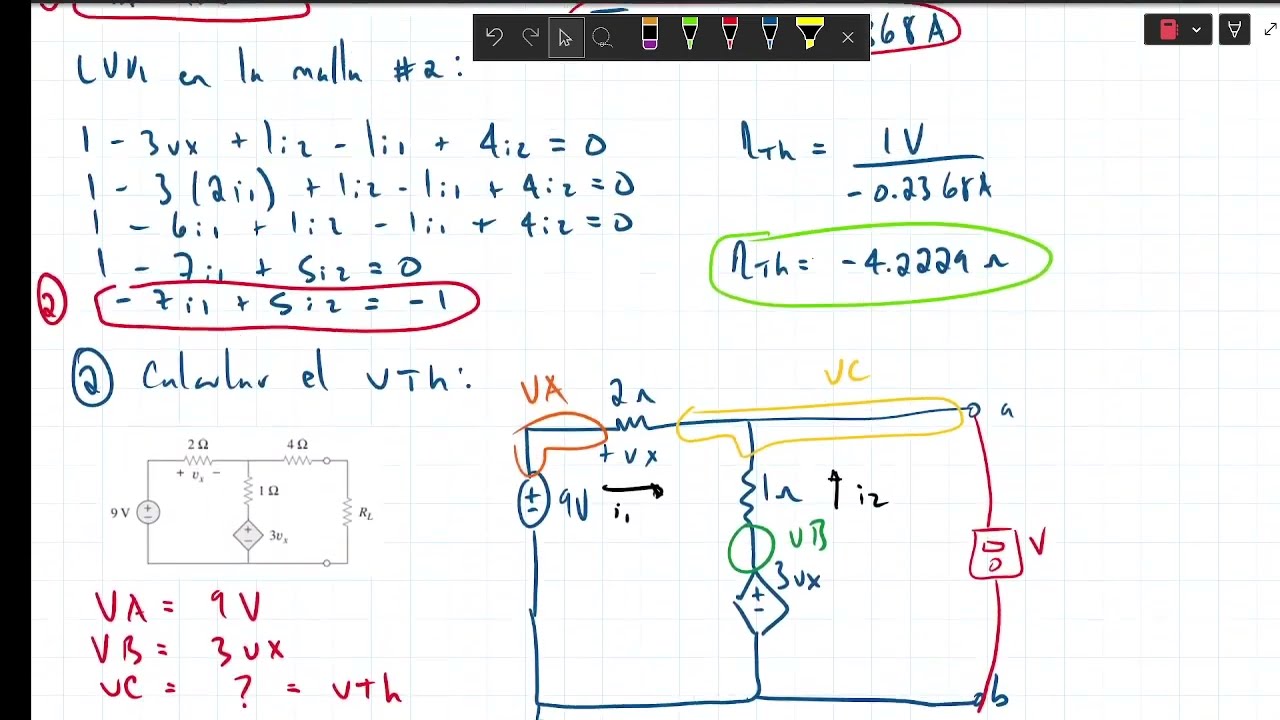 368 A
LVK en la malla #2:
1 - 3vx + 1i2 - 1i1 + 4i2 = 0
1 - 3(2i1) + 1i2 - 1i1 + 4i2 = 0
1 - 6i1 + 1i2 - 1i1 + 4i2 = 0
1 - 7i1 + 5i2 = 0
② -7i1 + 5i2 = -1
RTh = 1V / -0.2368A
RTh = -4.2229 Ω
② Calcular el VTh:
2 Ω 4 Ω
+ vx -
1 Ω
9 V
RL
3vx
VA = 9V
VB = 3vx
VC = ? = vTh
VA 2Ω VC
a
+ vx
9V i1 1Ω i2
VB V
3vx
b